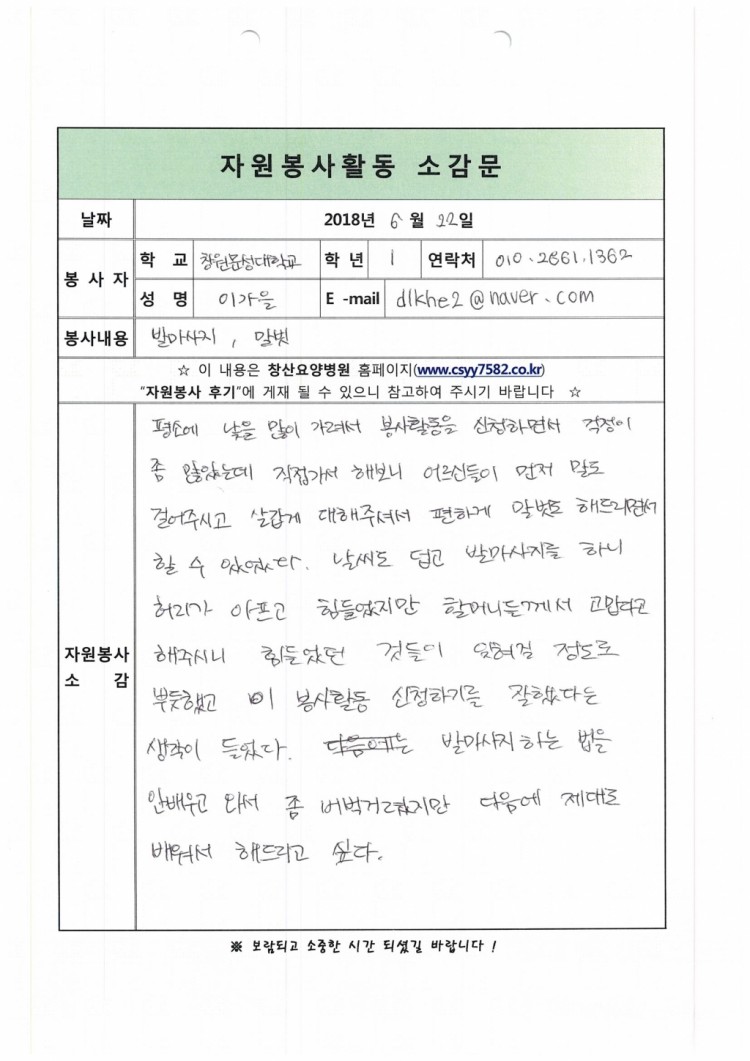 자원봉사활동 소감문
날짜 2018년 6월 22일
봉사자 학교 창원문성대학교 학년 1 연락처 010.2861.1362
성명 이가을 E-mail dlkhe2@naver.com
봉사내용 발마사지, 말벗
☆ 이 내용은 창산요양병원 홈페이지(www.csyy7582.co.kr)
"자원봉사 후기"에 게재 될 수 있으니 참고하여 주시기 바랍니다 ☆
자원봉사 소감
평소에 낯을 많이 가려서 봉사활동을 신청하면서 걱정이
좀 많았는데 직접가서 해보니 어르신들이 먼저 말도
걸어주시고 살갑게 대해주셔서 편하게 말벗도 해드리면서
할 수 있었다. 날씨도 덥고 발마사지를 하니
허리가 아프고 힘들었지만 할머니들께서 고맙다고
해주시니 힘들었던 것들이 잊혀질 정도로
뿌듯했고 이 봉사활동 신청하기를 잘했다는
생각이 들었다. 다음에는 발마사지 하는 법을
안배우고 와서 좀 버벅거렸지만 다음에 제대로
배워서 해드리고 싶다.
※ 보람되고 소중한 시간 되셨길 바랍니다 !